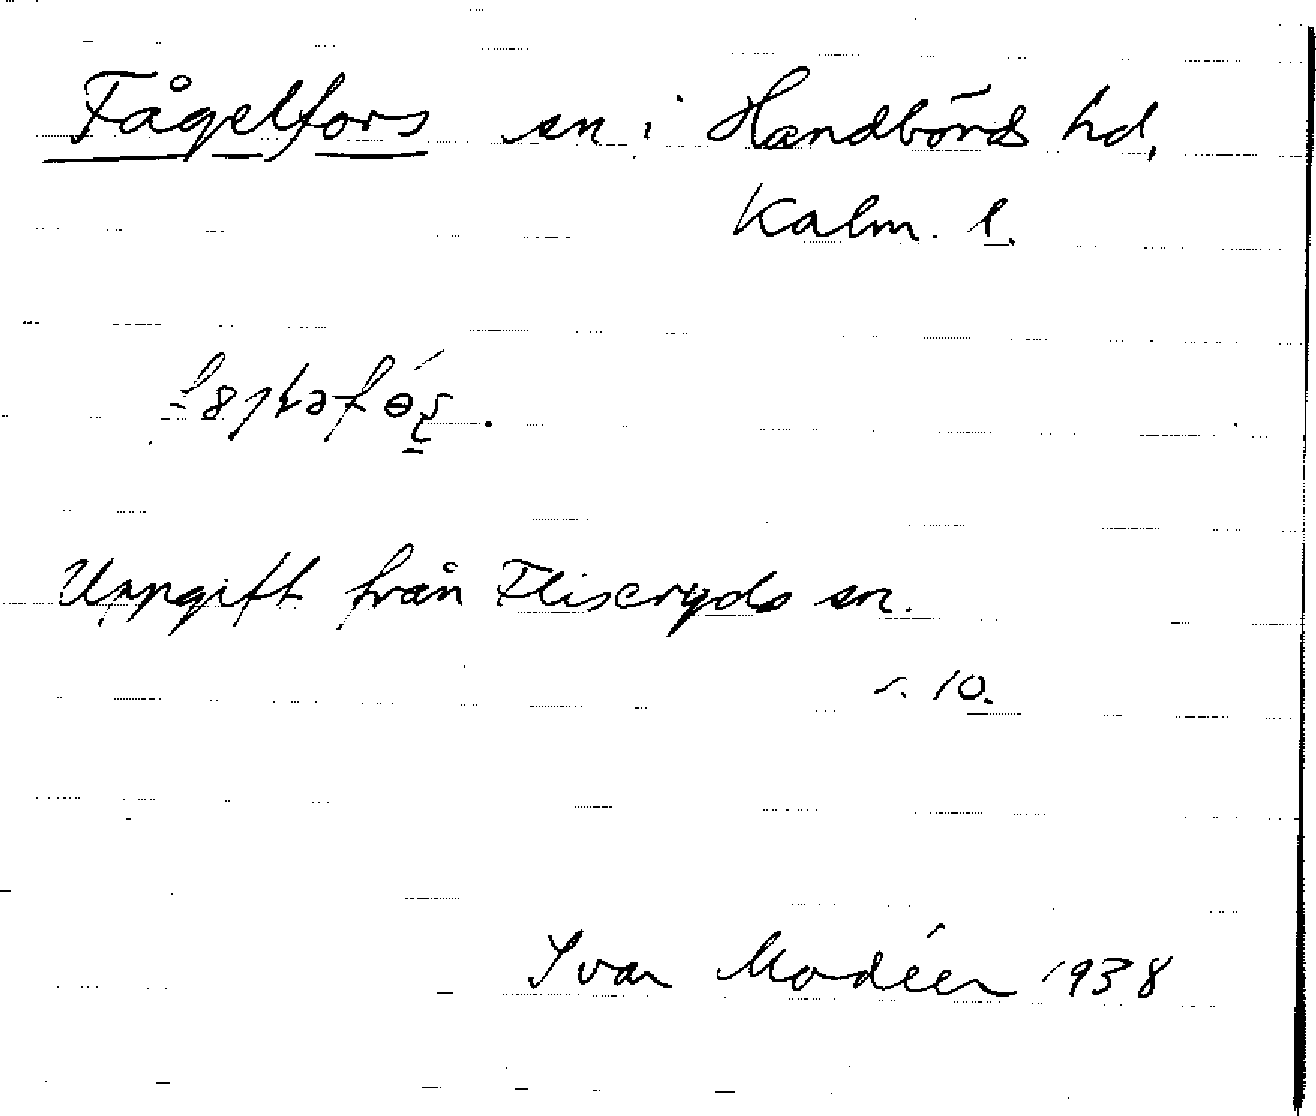 Fågelfors sn i Handbörds hd,
Kalm. l.
Uppgift från Fliseryds sn.
s. 10.
Ivar Modéer 1938